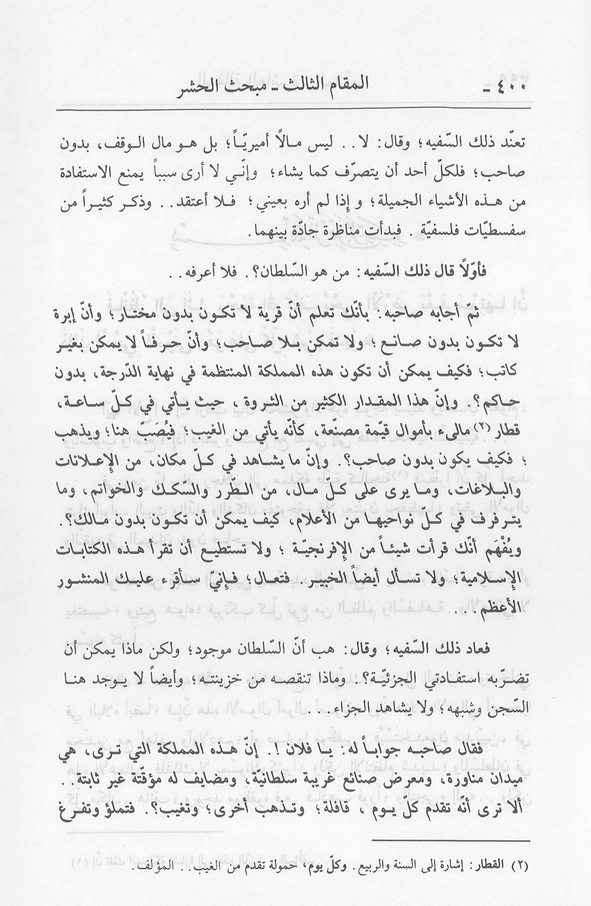 ٤٠٠ ـ المقام الثالث ـ مبحث الحشر
تعنّد ذلك السّفيه؛ وقال: لا.. ليس مالاً أميريّاً؛ بل هو مال الوقف، بدون
صاحب؛ فلكلّ أحد أن يتصرّف كما يشاء؛ وإنّي لا أرى سبباً يمنع الاستفادة
من هذه الأشياء الجميلة؛ و إذا لم أره بعيني؛ فلا أعتقد.. وذكر كثيراً من
سفسطيّات فلسفيّة. فبدأت مناظرة جادّة بينهما.
فأوّلاً قال ذلك السّفيه: من هو السّلطان؟. فلا أعرفه..
ثمّ أجابه صاحبه: بأنّك تعلم أنّ قرية لا تكون بدون مختار؛ وأنّ إبرة
لا تكون بدون صانع؛ ولا تمكن بلا صاحب؛ وأنّ حرفاً لا يمكن بغير
كاتب؛ فكيف يمكن أن تكون هذه المملكة المنتظمة في نهاية الدّرجة، بدون
حاكم؟. وإنّ هذا المقدار الكثير من الثروة، حيث يأتي في كلّ ساعة،
قطار(٢) مالىء بأموال قيّمة مصنّعة، كأنّه يأتي من الغيب؛ فيُصَبّ هنا؛ ويذهب
؛ فكيف يكون بدون صاحب؟. وإنّ ما يشاهد في كلّ مكان، من الإعلانات
والبلاغات، وما يرى على كلّ مال، من الطّرر والسّكك والخواتم، وما
يترفرف في كلّ نواحيها من الأعلام، كيف يمكن أن تكون بدون مالك؟.
ويُفْهَم أنّك قرأت شيئاً من الإفرنجيّة ؛ ولا تستطيع أن تقرأ هذه الكتابات
الإسلامية؛ ولا تسأل أيضاً الخبير. فتعال؛ فإنيّ سأقرء عليك المنشور
الأعظم...
فعاد ذلك السّفيه؛ وقال: هب أنّ السّلطان موجود؛ ولكن ماذا يمكن أن
تضرّبه استفادتي الجزئيّة؟. وماذا تنقصه من خزينته؛ وأيضاً لا يوجد هنا
السّجن وشبهه؛ ولا يشاهد الجزاء...
فقال صاحبه جواباً له: يا فلان!. إنّ هذه المملكة التي ترى، هي
ميدان مناورة، ومعرض صنائع غريبة سلطانيّة، ومضايف له مؤقّتة غير ثابتة..
ألا ترى أنّه تقدم كلّ يوم، قافلة؛ وتذهب أخرى؛ وتغيب؟. فتملؤ وتفرغ
(٢) القطار: إشارة إلى السنة والربيع. وكلّ يوم، حمولة تقدم من الغيب.. المؤلف.